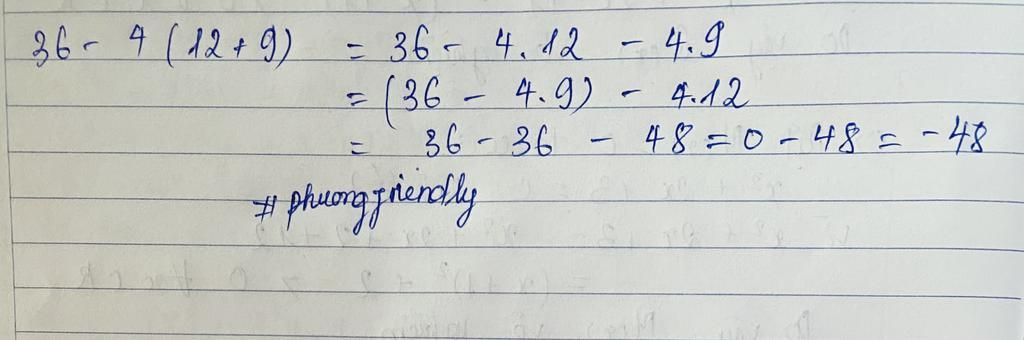 36 - 4 (12 + 9) = 36 - 4.12 - 4.9
= (36 - 4.9) - 4.12
= 36 - 36 - 48 = 0 - 48 = -48
# phuongfriendly